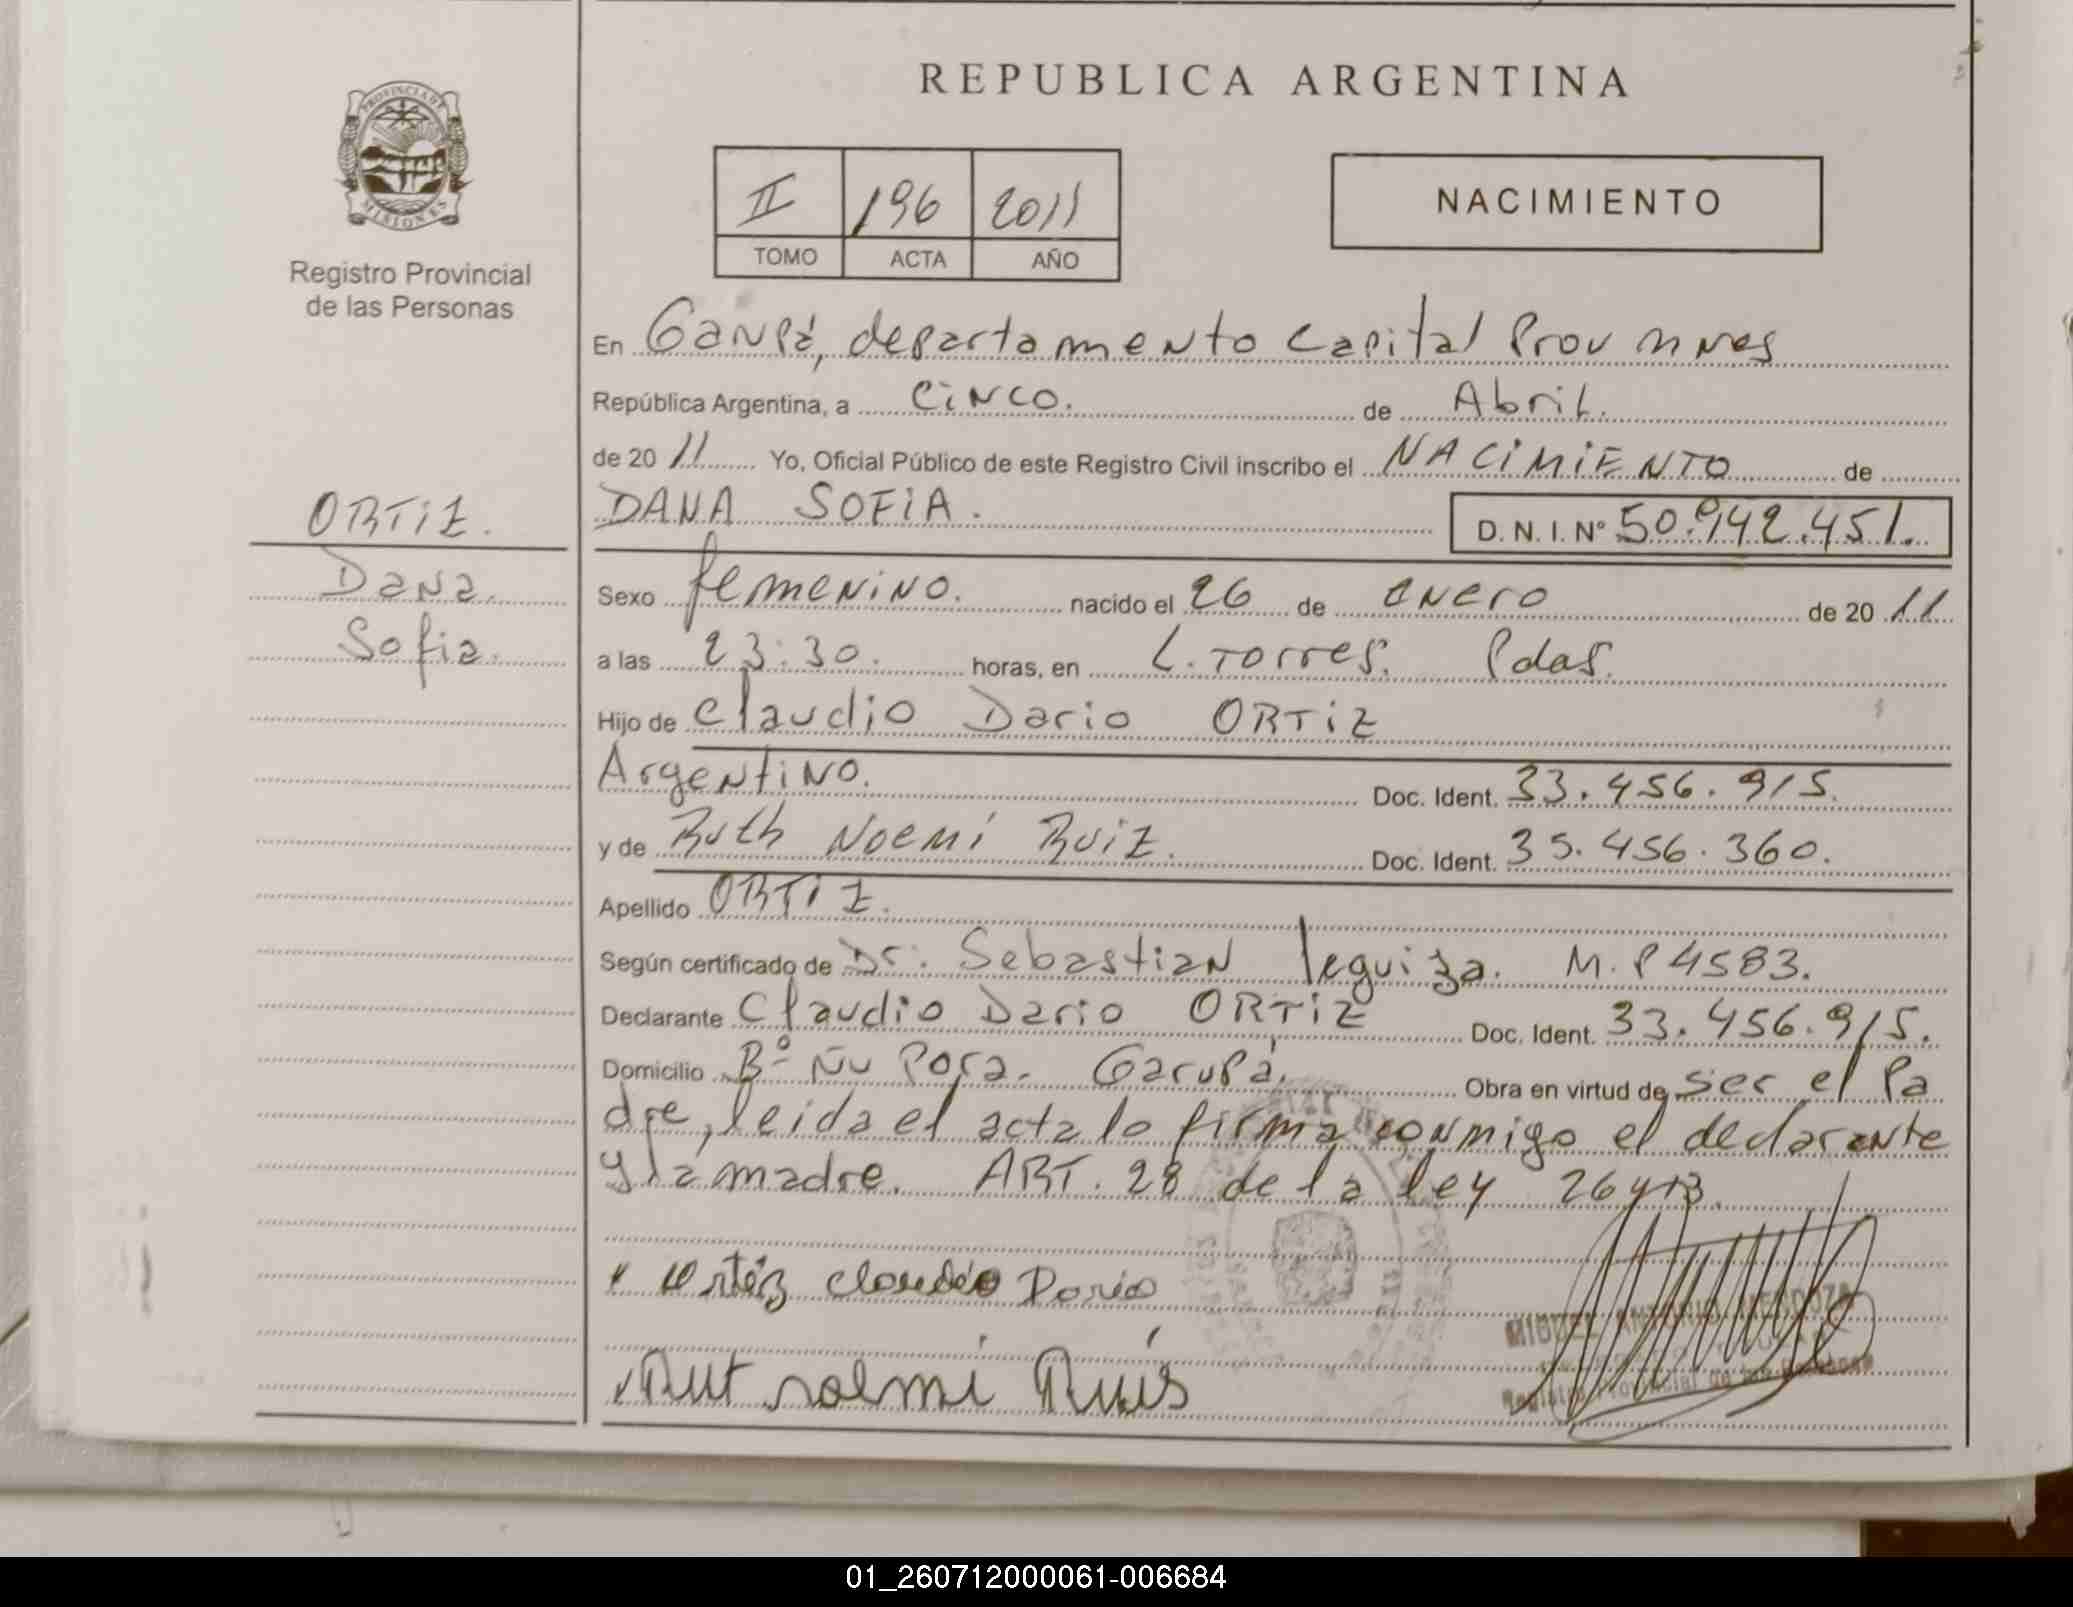 REPUBLICA ARGENTINA
PROVINCIA DE
MISIONES
Registro Provincial
de las Personas
II 196 2011
TOMO ACTA AÑO
NACIMIENTO
En Garupá, departamento Capital Prov Mnes
República Argentina, a CINCO. de Abril.
de 2011 Yo, Oficial Público de este Registro Civil inscribo el NACIMIENTO de
DANA SOFIA. D. N. I. Nº 50.942.451.
ORTIZ.
Dana
Sofia.
Sexo femenino. nacido el 26 de enero de 2011
a las 23:30. horas, en L. Torres. Pdas.
Hijo de Claudio Dario ORTIZ
Argentino. Doc. Ident. 33.456.915.
y de Ruth Noemí Ruiz. Doc. Ident. 35.456.360.
Apellido ORTIZ.
Según certificado de Dr. Sebastian leguiza. M.P 4583.
Declarante Claudio Dario ORTIZ Doc. Ident. 33.456.915.
Domicilio Bº Ñu Porá. Garupá. Obra en virtud de ser el Pa
dre, leida el acta lo firma conmigo el declarante
y la madre. ART. 28 de la ley 26413.
Ortiz Claudio Dario
Rut noemi Ruis
MIGUEL ANTONIO MENDOZA
Registro Provincial de las Personas
01_260712000061-006684